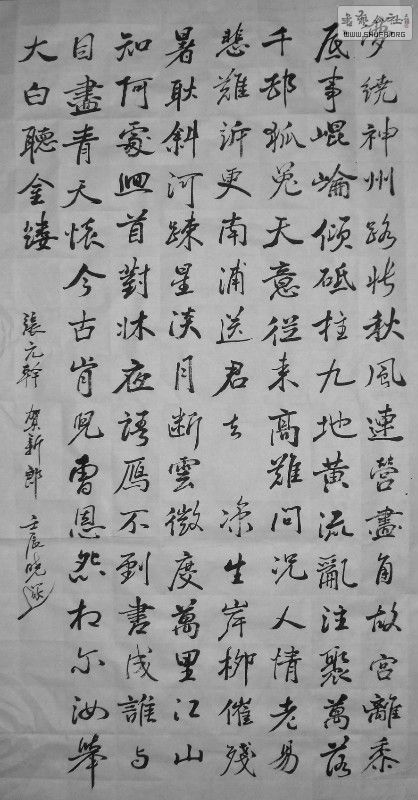 夢繞神州路悵秋風連營畫角故宮離黍
底事崐崘傾砥柱九地黄流亂注聚萬落
千邨狐兔天意從來高難問況人情老易
悲難訴更南浦送君去 涼生岸柳催殘
暑耿斜河疎星淡月斷雲微度萬里江山
知何處迴首對牀夜語鴈不到書成誰与
目盡青天懷今古肯兒曹恩怨相尔汝舉
大白聽金縷
張元幹 賀新郎 壬辰曉
WWW.SHUFA.ORG